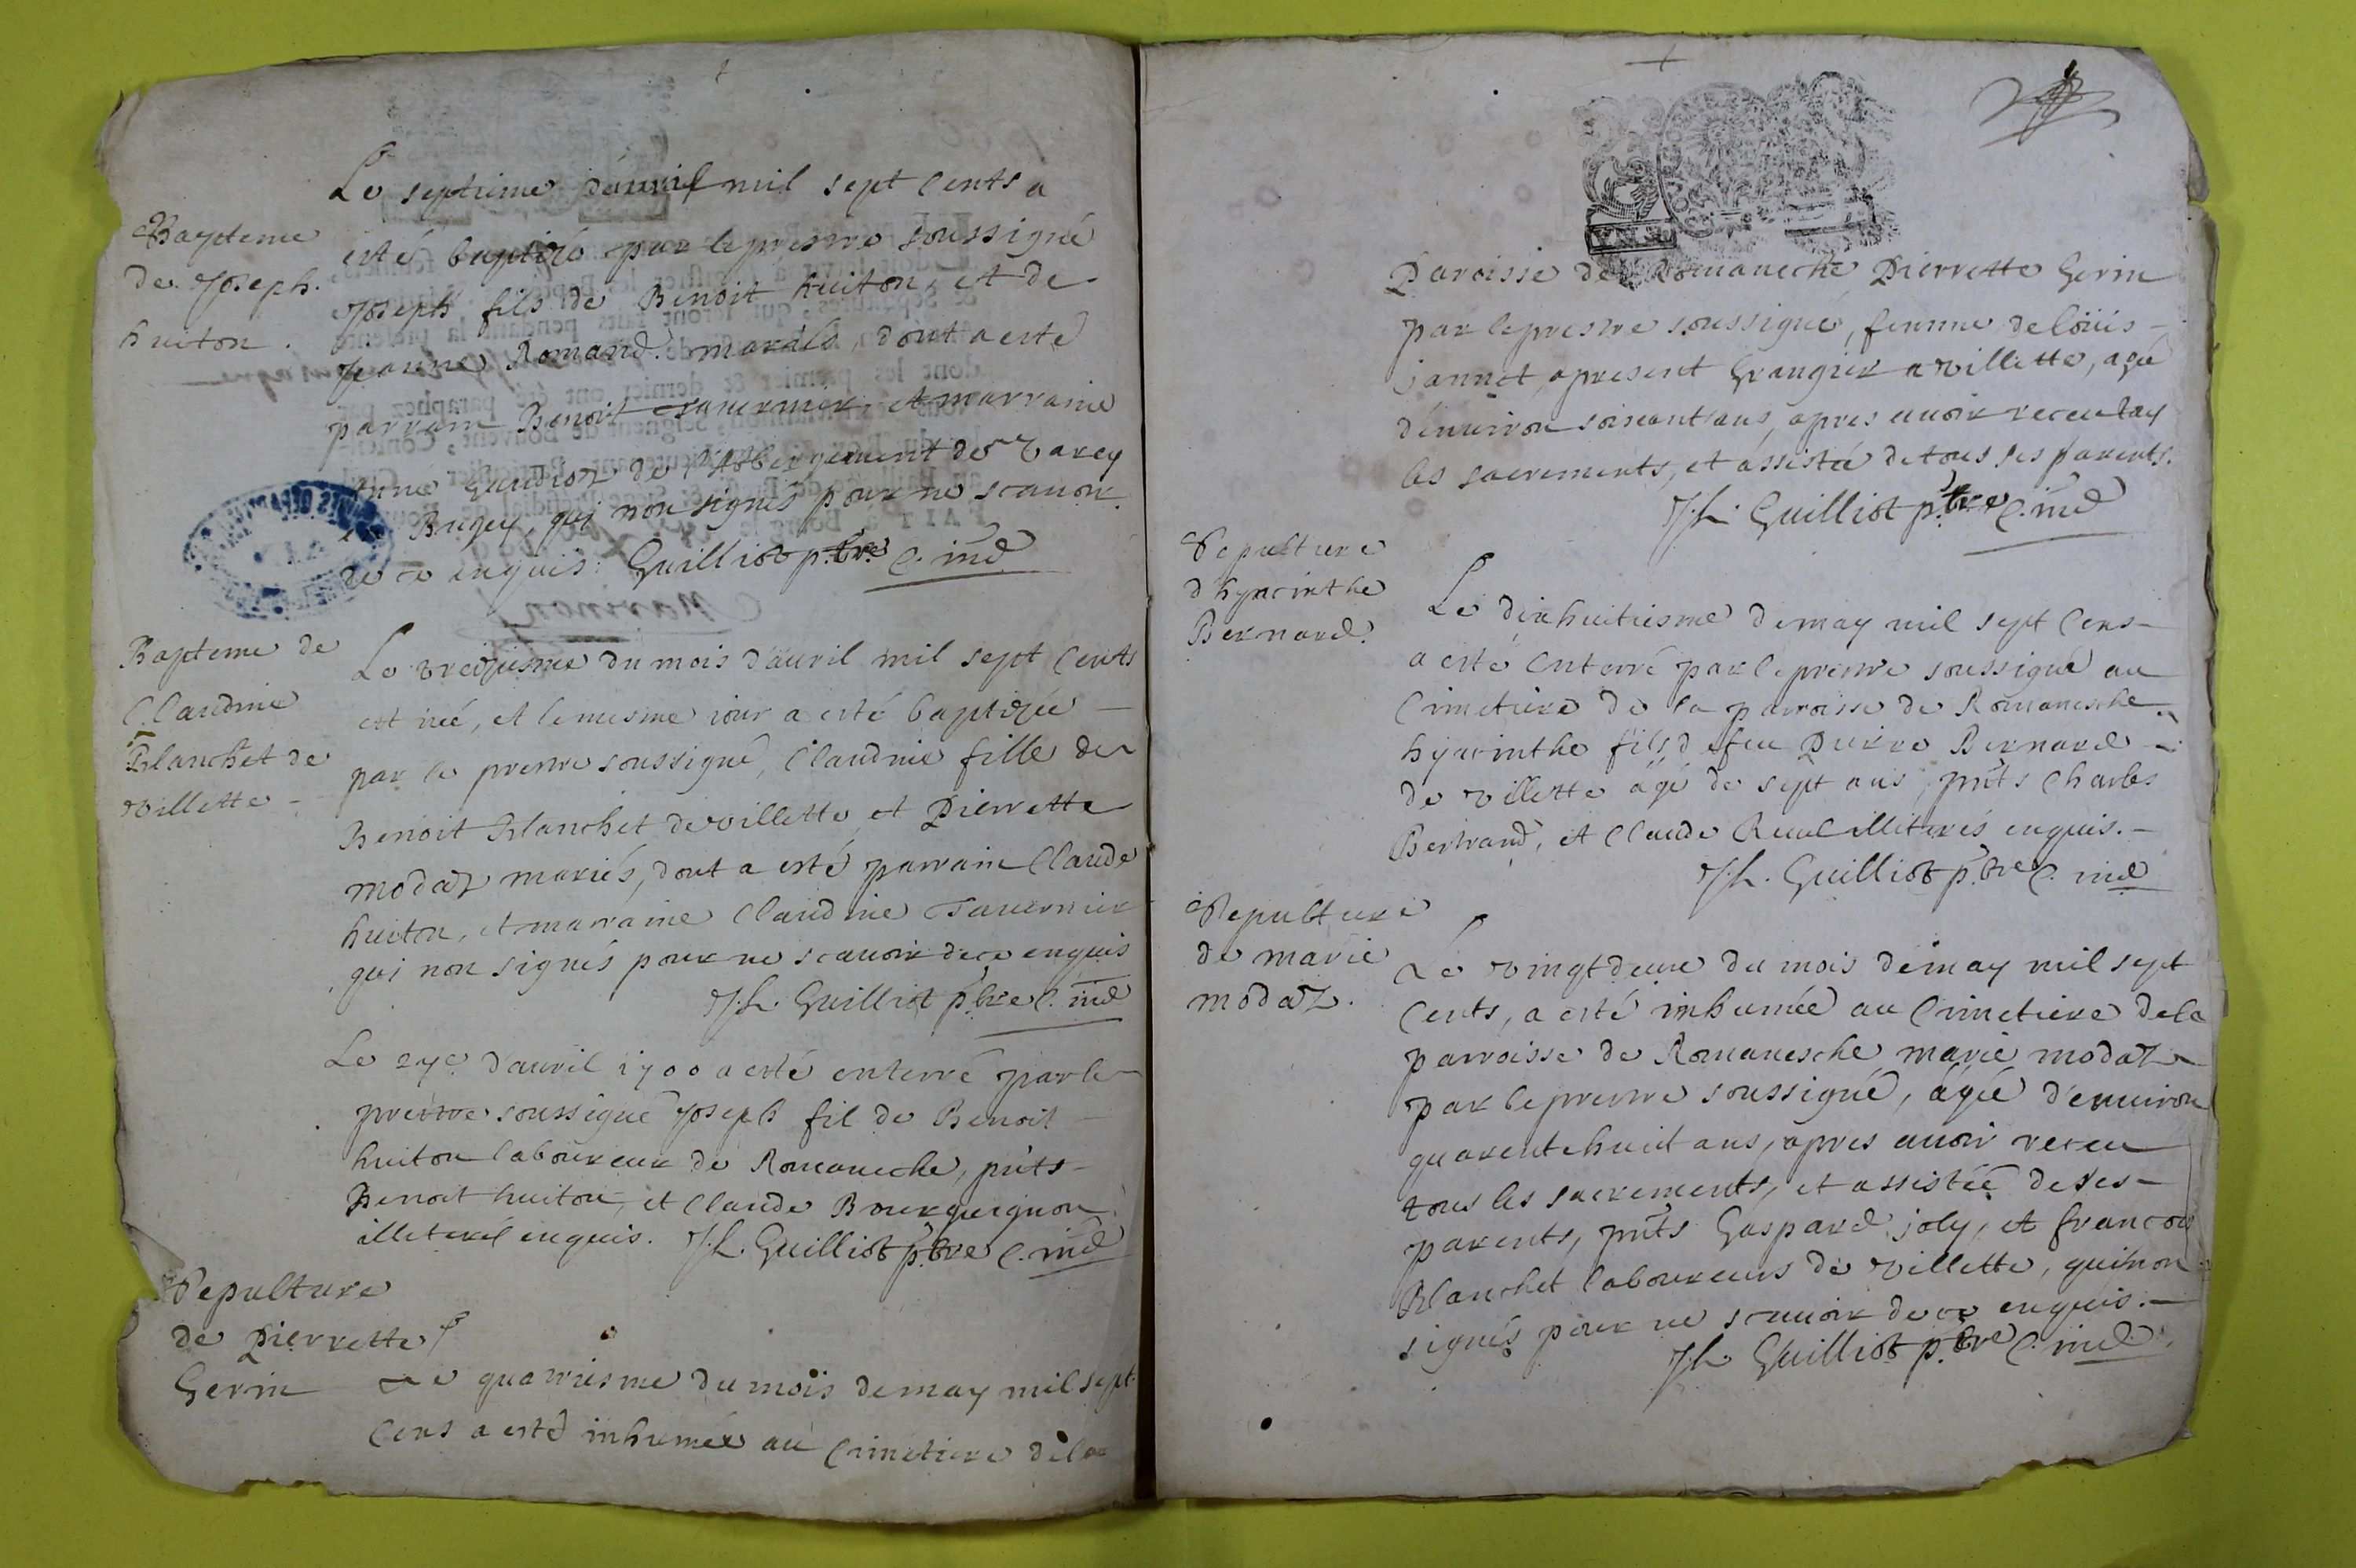 Bapteme
de Joseph
huiton.
Le septieme d'auril mil sept Cents a
esté baptizé par le prestre soussigné
Joseph fils de Benoit huiton, et de
Jeanne Romand mariés, dont a esté
parrain Benoit Tauernier et marraine
Anne Gaudioz de l'Abbergement de Varey
Bugey, qui non signés pour ne scauoir
de ce enquis. Guilliot p.bre C. ind
Bapteme de
Claudine
Blanchet de
villette
Le treiziesme du mois d'auril mil sept Cents
est née, et le mesme iour a esté baptizée
par le prestre soussigné, Claudine fille de
Benoit Blanchet de villette et Pierrette
modaz mariés, dont a esté parrain Claude
huiton, et marraine Claudine Tauernier
qui non signés pour ne scauoir de ce enquis
J.L. Guilliot p.bre C. ind
Le 27e d'auril 1700 a esté enterré par le
prestre soussigné Joseph fil de Benoit
huiton laboureur de Romaneche, pnts
Benoit huiton, et Claude Bourguignon
illeterés enquis. J.L. Guilliot p.bre C. ind
Sepulture
de Pierrette
Gerin
Le quatriesme du mois de may mil sept
Cens a esté inhumée au Cimetiere de la
Paroisse de Romaneche Pierrette Gerin
par le prestre soussigné, femme de loüis
jannet, apresent Grangier a villette, agé
d'enuiron soixant ans, apres auoir receu
les sacrements, et assistée de tous ses parents.
J.L. Guilliot p.bre C. ind
Sepulture
d hyacinthe
Bernard.
Le dixhuitiesme de may mil sept Cens
a esté Enterré par le prestre soussigné au
Cimetiere de la parroisse de Romanesche
hyacinthe fils de feu Pierre Bernard
de villette agé de sept ans, pnts Charles
Bertrand, et Claude Reual illiterés enquis.
J.L. Guilliot p.bre C. ind
Sepulture
de marie
modaz.
Le vingtdeux du mois de may mil sept
Cents, a esté inhumée au Cimetiere de la
parroisse de Romanesche marie modaz
par le prestre soussigné, agée d'enuiron
quarente huit ans, apres auoir receu
tous les sacrements, et assistée de ses
parents, pnts Gaspard joly, et francois
Blanchet laboureurs de villette, qui non
signés pour ne scauoir de ce enquis.
J.L. Guilliot p.bre C. ind